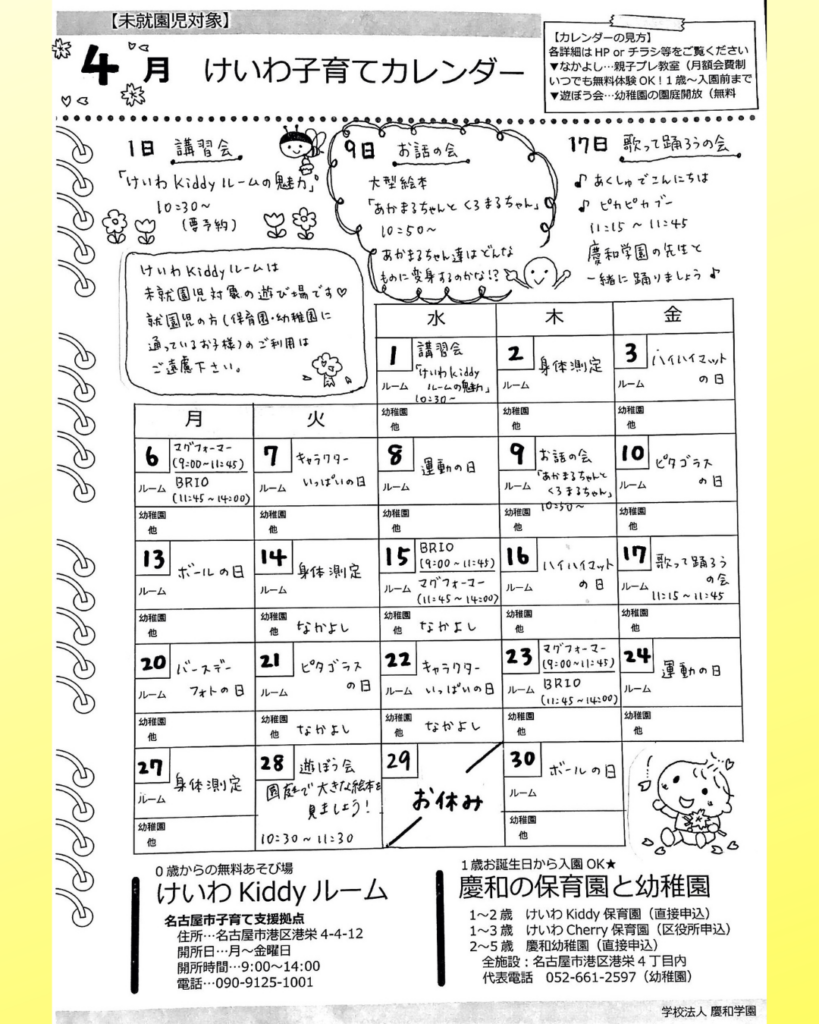 【未就園児対象】
4月 けいわ子育てカレンダー
【カレンダーの見方】
各詳細は HP or チラシ等をご覧ください
▼なかよし…親子プレ教室（月額会費制
いつでも無料体験 OK！1 歳～入園前まで
▼遊ぼう会…幼稚園の園庭開放（無料
1日 講習会
「けいわ Kiddy ルームの魅力」
10:30～
（要予約）
9日 お話の会
大型絵本
「あかまるちゃんと くろまるちゃん」
10:50～
あかまるちゃん達はどんな
ものに変身するのかな!?
17日 歌って踊ろうの会
♪ あくしゅでこんにちは
♪ ピカピカブー
11:15 ～ 11:45
慶和学園の先生と
一緒に踊りましょう ♪
けいわ Kiddy ルームは
未就園児対象の遊び場です♡
就園児の方（保育園・幼稚園に
通っているお子様）のご利用は
ご遠慮下さい。
水 木 金
1 講習会
「けいわ Kiddy
ルームの魅力」
10:30～
ルーム
幼稚園
他
2 身体測定
ルーム
幼稚園
他
3 ハイハイマット
の日
ルーム
幼稚園
他
月 火
6 マグフォーマー
(9:00～11:45)
BRIO
(11:45～14:00)
ルーム
幼稚園
他
7 キャラクター
いっぱいの日
ルーム
幼稚園
他
8 運動の日
ルーム
幼稚園
他
9 お話の会
「あかまるちゃんと
くろまるちゃん」
10:50～
ルーム
幼稚園
他
10 ピタゴラス
の日
ルーム
幼稚園
他
13 ボールの日
ルーム
幼稚園
他
14 身体測定
ルーム
幼稚園
他 なかよし
15 BRIO
(9:00～11:45)
マグフォーマー
(11:45～14:00)
ルーム
幼稚園
他 なかよし
16 ハイハイマット
の日
ルーム
幼稚園
他
17 歌って踊ろう
の会
11:15～11:45
ルーム
幼稚園
他
20 バースデー
フォトの日
ルーム
幼稚園
他
21 ピタゴラス
の日
ルーム
幼稚園
他 なかよし
22 キャラクター
いっぱいの日
ルーム
幼稚園
他 なかよし
23 マグフォーマー
(9:00～11:45)
BRIO
(11:45～14:00)
ルーム
幼稚園
他
24 運動の日
ルーム
幼稚園
他
27 身体測定
ルーム
幼稚園
他
28 遊ぼう会
園庭で大きな絵本を
見ましょう！
10:30～11:30
29
お休み
30 ボールの日
ルーム
幼稚園
他
0 歳からの無料あそび場
けいわ Kiddy ルーム
名古屋市子育て支援拠点
住所…名古屋市港区港栄 4-4-12
開所日…月～金曜日
開所時間…9:00～14:00
電話…090-9125-1001
1 歳お誕生日から入園 OK★
慶和の保育園と幼稚園
1～2 歳 けいわ Kiddy 保育園（直接申込）
1～3 歳 けいわ Cherry 保育園（区役所申込）
2～5 歳 慶和幼稚園（直接申込）
全施設：名古屋市港区港栄 4 丁目内
代表電話 052-661-2597（幼稚園）
学校法人 慶和学園